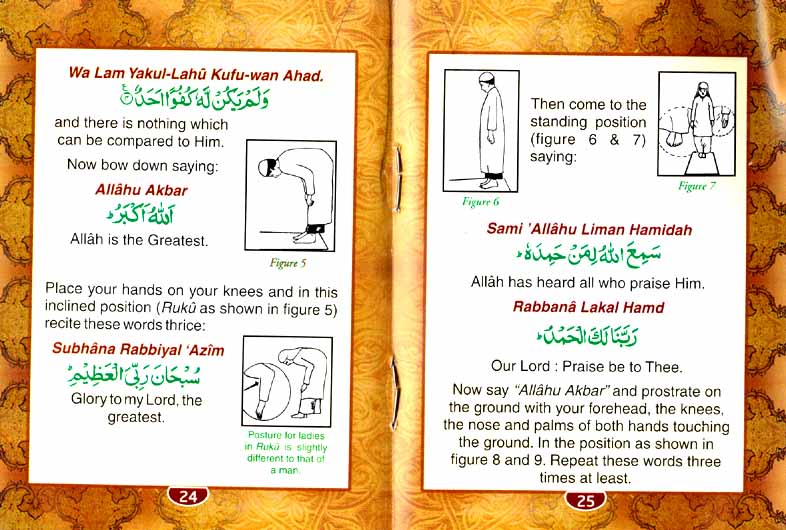 Wa Lam Yakul-Lahû Kufu-wan Ahad.
وَلَمْ يَكُنْ لَّهٗ كُفُوًا اَحَدٌ
and there is nothing which
can be compared to Him.
Now bow down saying:
Allâhu Akbar
اَللّٰهُ اَكْبَرُ
Allâh is the Greatest.
Figure 5
Place your hands on your knees and in this
inclined position (Rukû as shown in figure 5)
recite these words thrice:
Subhâna Rabbiyal ‘Azîm
سُبْحَانَ رَبِّيَ الْعَظِيْمِ
Glory to my Lord, the
greatest.
Posture for ladies
in Rukû is slightly
different to that of
a man.
24
Then come to the
standing position
(figure 6 & 7)
saying:
Figure 6
Figure 7
Sami ’Allâhu Liman Hamidah
سَمِعَ اللّٰهُ لِمَنْ حَمِدَهٗ
Allâh has heard all who praise Him.
Rabbanâ Lakal Hamd
رَبَّنَا لَكَ الْحَمْدُ
Our Lord : Praise be to Thee.
Now say “Allâhu Akbar” and prostrate on
the ground with your forehead, the knees,
the nose and palms of both hands touching
the ground. In the position as shown in
figure 8 and 9. Repeat these words three
times at least.
25